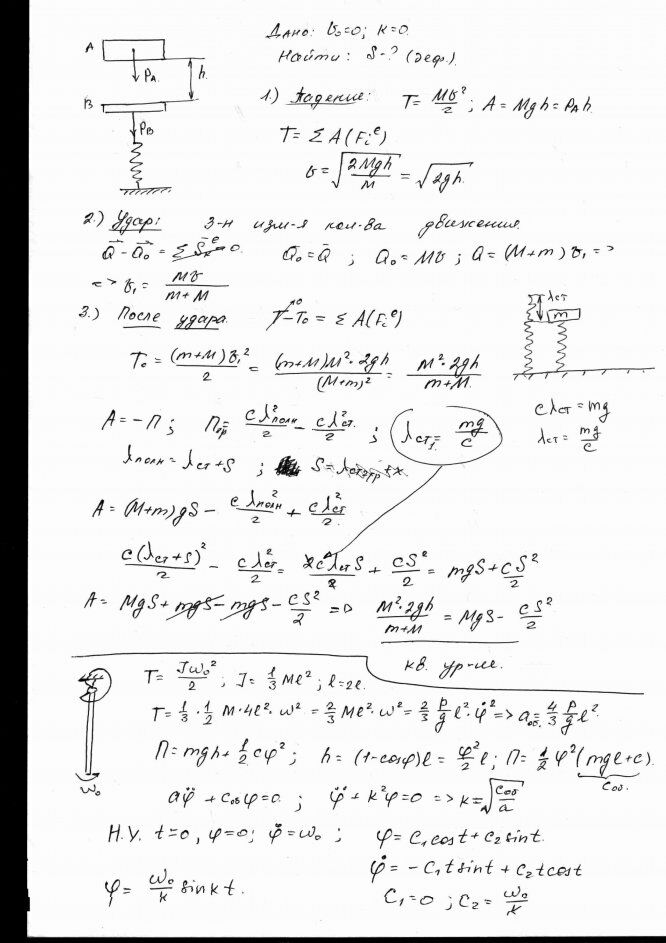 Дано: v₀=0; k=0.
Найти: S-? (деф.).
A
P_A
h
B
P_B
1.) Падение: T = Mv²/2 ; A = Mgh = P_A h.
T = ΣA(Fᵢᵉ)
v = √(2Mgh/M) = √(2gh).
2.) Удар: З-н изм-я кол-ва движения.
Q̄ - Q̄₀ = ΣS̄ₖᵉ = 0. Q̄₀ = Q̄ ; Q₀ = Mv ; Q = (M+m) v₁ =>
=> v₁ = Mv/(m+M)
3.) После удара. T - T₀ = ΣA(Fᵢᵉ)
λст
m
T₀ = (m+M)v₁²/2 = (m+M)M²·2gh/(M+m)² = M²·2gh/(m+M)
cλст = mg
λст = mg/c
A = -П ; Ппр = cλ²полн/2 - cλ²ст/2 ; λст₁ = mg/c
λполн = λст + S ; S = λст
A = (M+m)gS - cλ²полн/2 + cλ²ст/2
c(λст+S)²/2 - cλ²ст/2 = 2cλстS/2 + cS²/2 = mgS + cS²/2
A = MgS + mgS - mgS - cS²/2 => M²·2gh/(m+M) = MgS - cS²/2
кв. ур-ие.
T = Jω₀²/2 ; J = 1/3 Ml² ; l = 2l.
T = 1/3 · 1/2 M·4l²·ω² = 2/3 Ml²·ω² = 2/3 P/g l²·φ̇² => aоб = 4/3 P/g l².
П = mgh + 1/2 cφ² ; h = (1-cosφ)l = φ²/2 l ; П = 1/2 φ²(mgl+c).
Cоб.
ω₀
aφ̈ + cобφ = 0 ; φ̈ + k²φ = 0 => k = √(Cоб/a)
Н.У. t=0, φ=0; φ̇=ω₀ ; φ = C₁cost + C₂sint.
φ̇ = -C₁tsint + C₂tcost
φ = ω₀/k sinkt. C₁=0 ; C₂ = ω₀/k